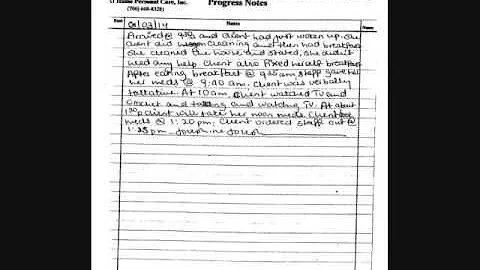 At Home Personal Care, Inc.
Progress Notes
(706) 608-8328
Date
Notes
Name
01/03/14
Arrived @ and client had just woken up. she
client did cleaning and then had breakfast
she cleaned the house and stated, she didn't
need any help. Client also fixed herself breakfast
After eating breakfast @ staff gave her
her meds @ 9:40 am. Client was verbally
talkative. At 10am, client watched TV and
crochet and talking and watching TV. At about
client will take her noon meds. Client
meds @ 1:20 pm. Client ordered staff out @
1:25 pm. Josephine Joseph